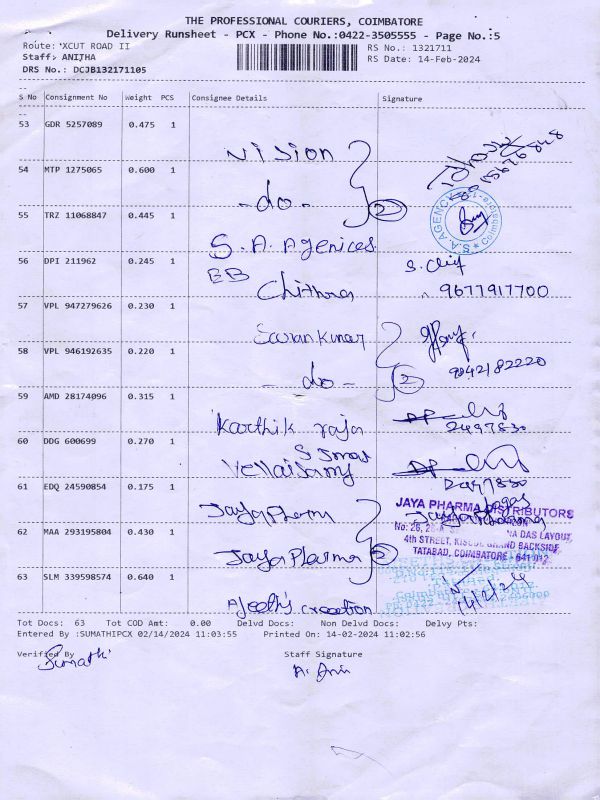 THE PROFESSIONAL COURIERS, COIMBATORE
Delivery Runsheet - PCX - Phone No.:0422-3505555 - Page No.:5
Route: 'XCUT ROAD II
RS No.: 1321711
Staff: ANITHA
RS Date: 14-Feb-2024
DRS No.: DCJB132171105
S No Consignment No Weight PCS Consignee Details Signature
53 GDR 5257089 0.475 1
Vision
54 MTP 1275065 0.600 1
- do - 2
55 TRZ 11068847 0.445 1
S.A. Agenices
S.A. AGENCY
56 DPI 211962 0.245 1
EB Chithra
9677917700
57 VPL 947279626 0.230 1
58 VPL 946192635 0.220 1
- do - 2
9042182220
59 AMD 28174096 0.315 1
Karthik raja
2497830
60 DDG 600699 0.270 1
Vellaisamy
2497830
61 EDQ 24590854 0.175 1
Jaya Pharma
JAYA PHARMA DISTRIBUTORS
62 MAA 293195804 0.430 1
Jaya Pharma 2
4th STREET, BACKSIDE
TATABAD, COIMBATORE
63 SLM 339598574 0.640 1
Ajeeth's creation
14/2/24
Tot Docs: 63 Tot COD Amt: 0.00 Delvd Docs: Non Delvd Docs: Delvy Pts:
Entered By :SUMATHIPCX 02/14/2024 11:03:55 Printed On: 14-02-2024 11:02:56
Verified By Staff Signature
Sumathi